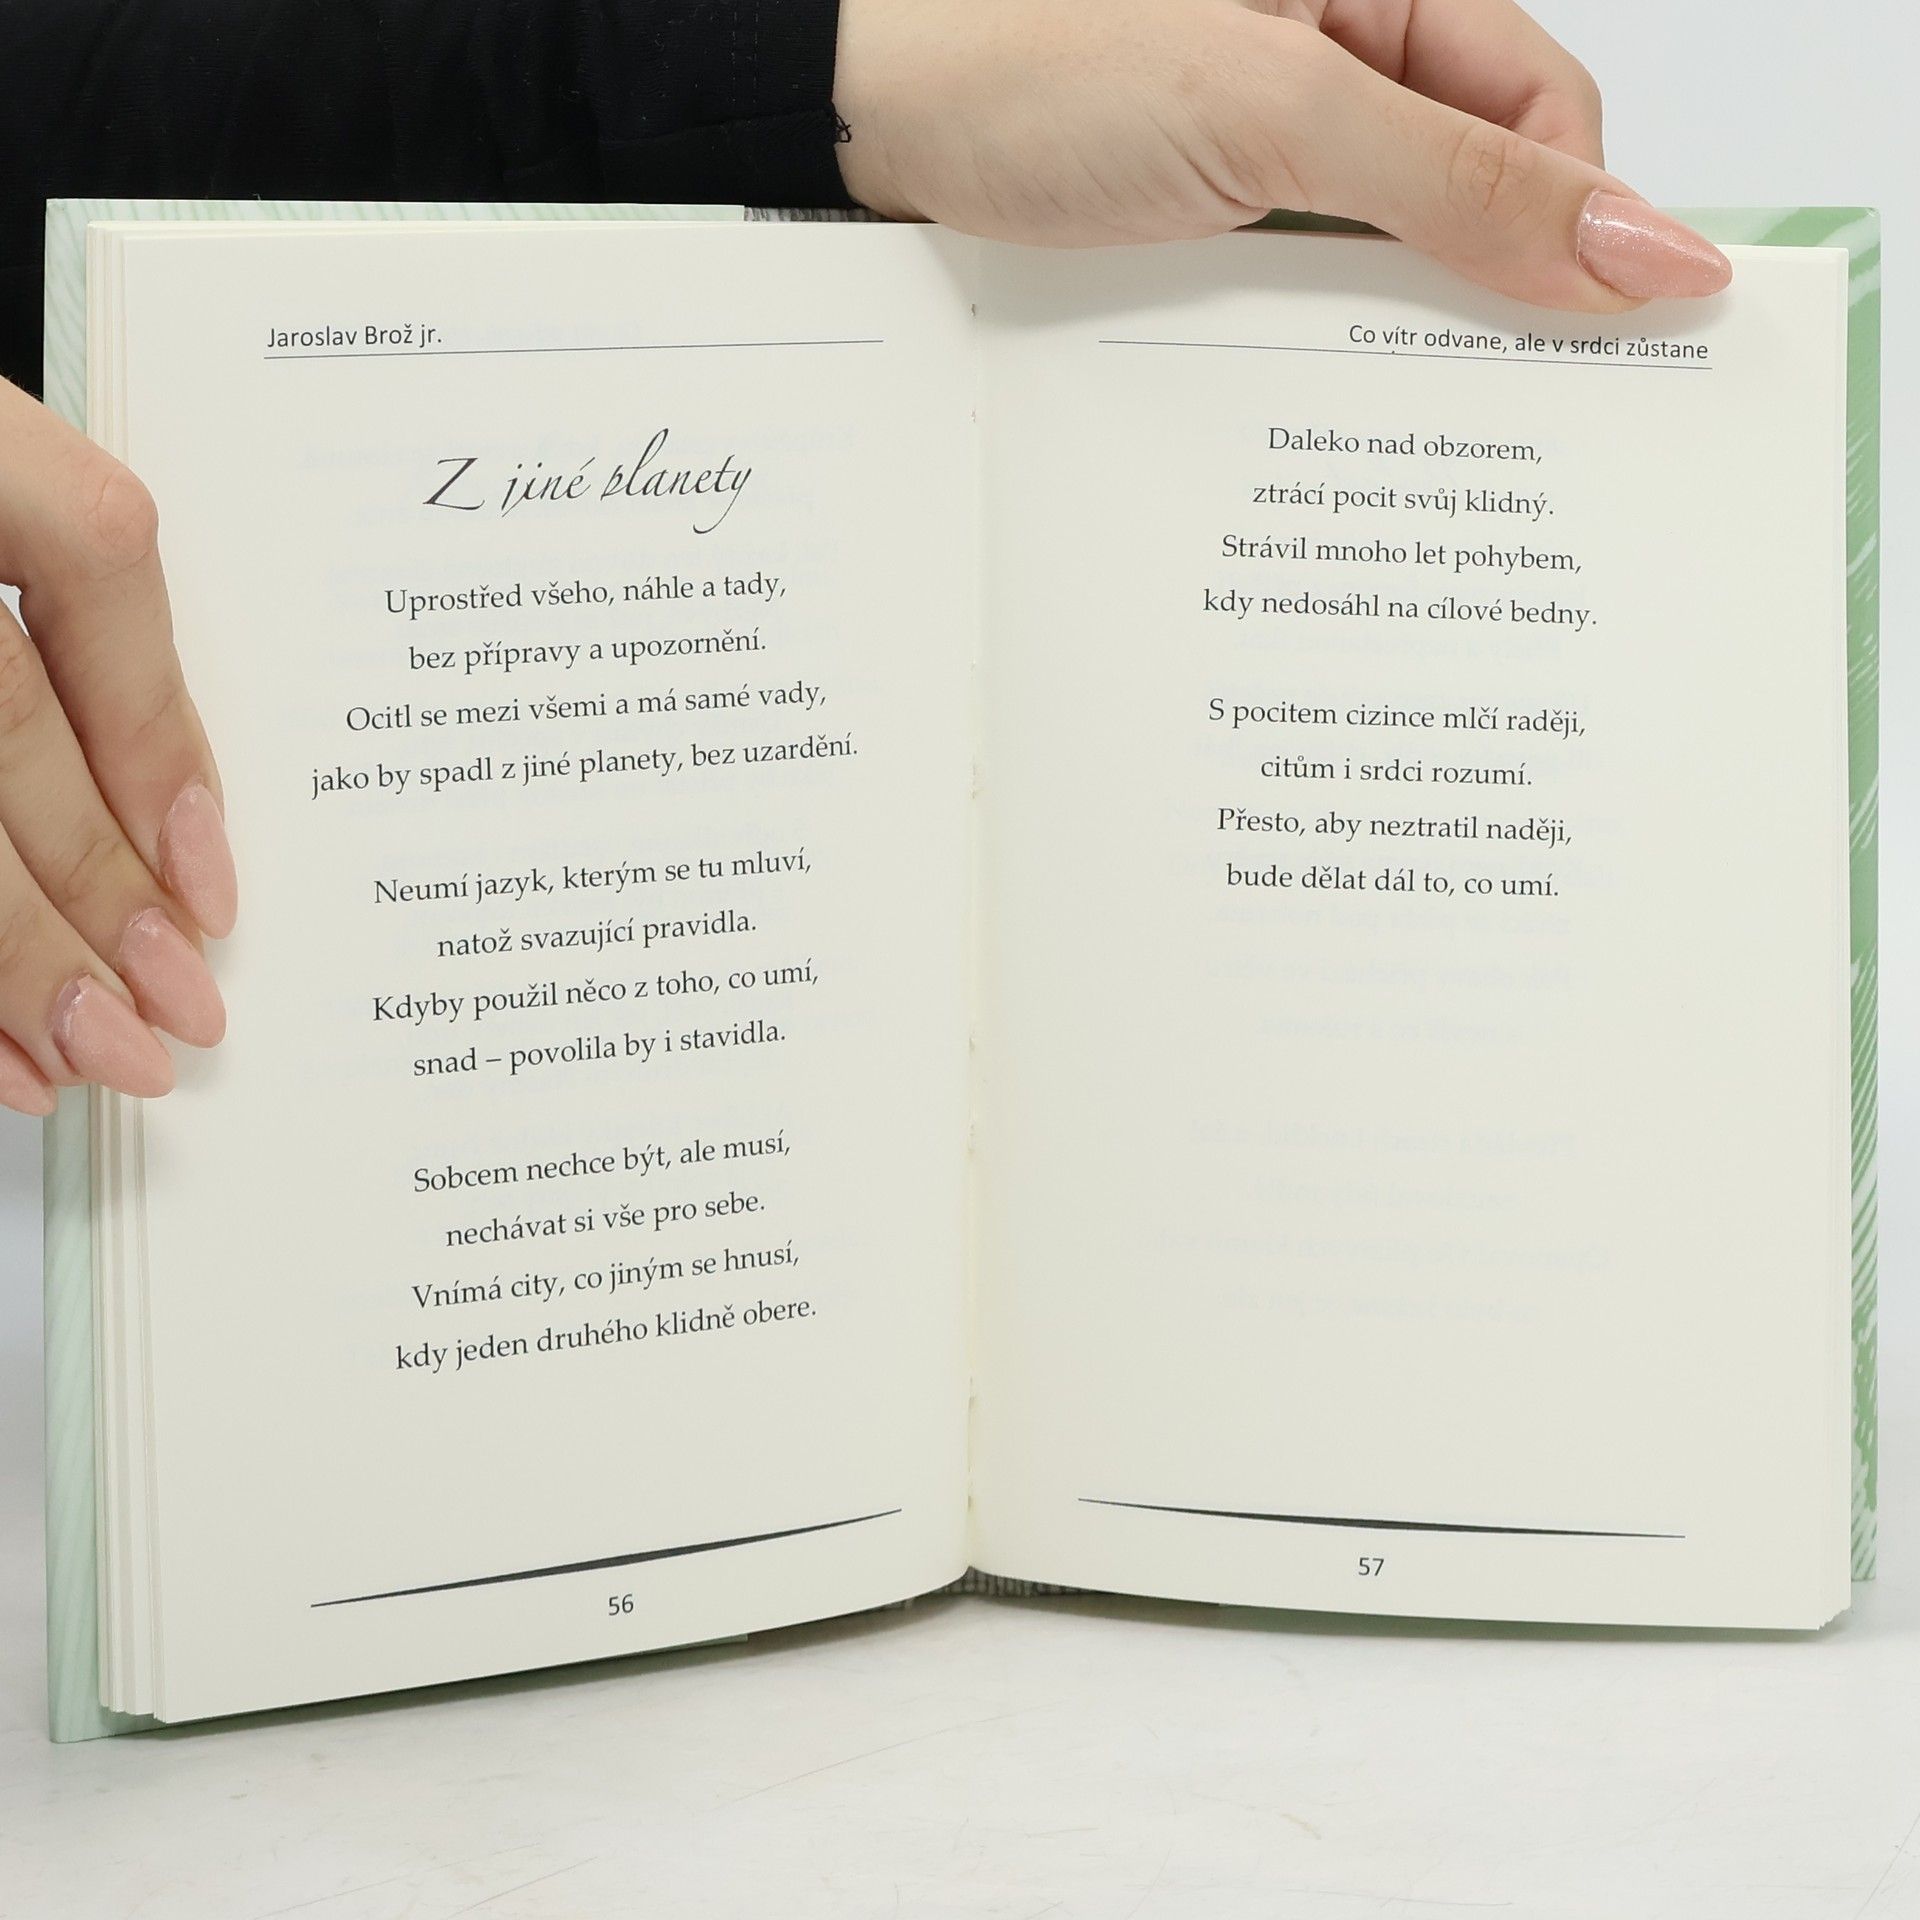 Jaroslav Brož jr.
Z jiné planety
Uprostřed všeho, náhle a tady,
bez přípravy a upozornění.
Ocitl se mezi všemi a má samé vady,
jako by spadl z jiné planety, bez uzardění.
Neumí jazyk, kterým se tu mluví,
natož svazující pravidla.
Kdyby použil něco z toho, co umí,
snad – povolila by i stavidla.
Sobcem nechce být, ale musí,
nechávat si vše pro sebe.
Vnímá city, co jiným se hnusí,
kdy jeden druhého klidně obere.
56
Co vítr odvane, ale v srdci zůstane
Daleko nad obzorem,
ztrácí pocit svůj klidný.
Strávil mnoho let pohybem,
kdy nedosáhl na cílové bedny.
S pocitem cizince mlčí raději,
citům i srdci rozumí.
Přesto, aby neztratil naději,
bude dělat dál to, co umí.
57